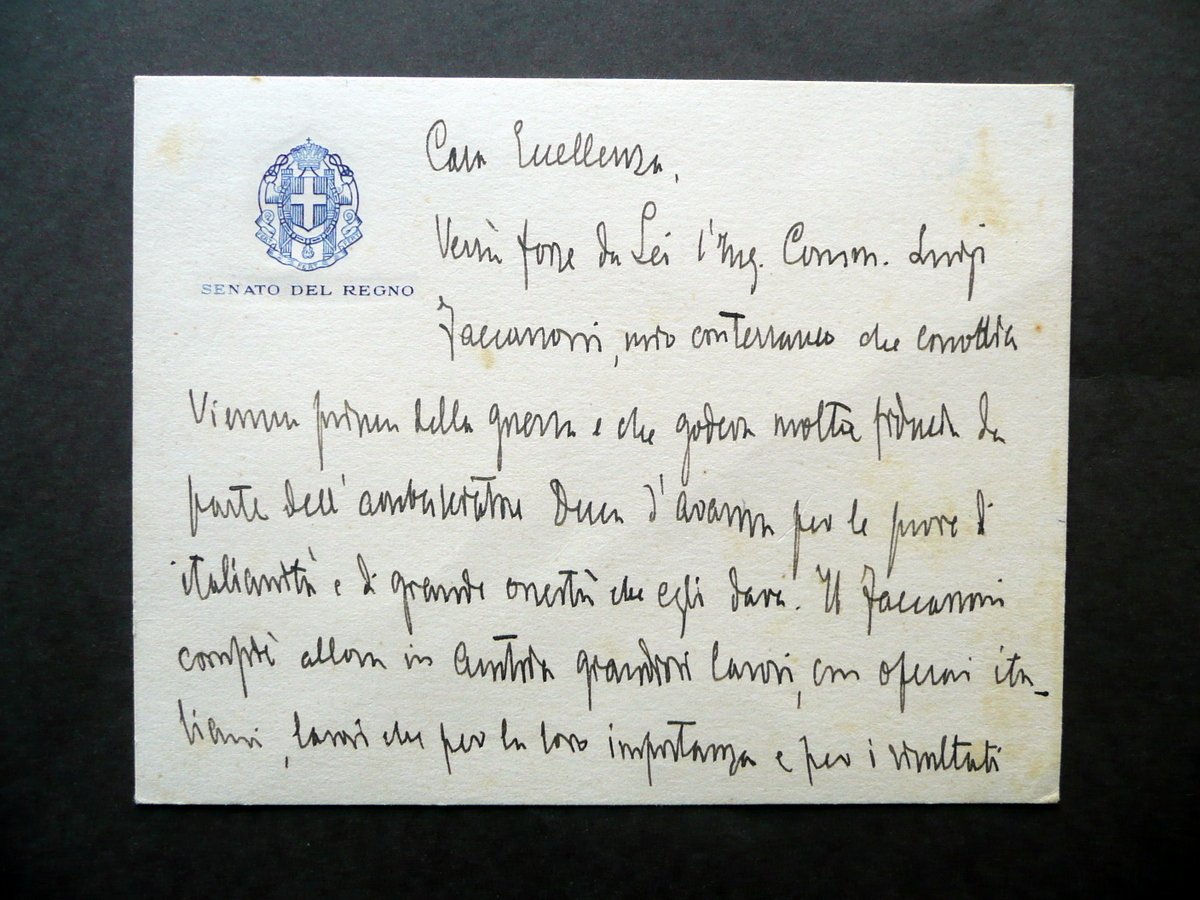 SENATO DEL REGNO
Cara Eccellenza,
Verrà forse da Lei l'Ing. Comm. Luigi
Faccanoni, mio conterraneo che conobbi a
Vienna prima della guerra e che godeva molta fiducia da
parte dell'ambasciatore Duca d'Avarna per le prove di
italianità e di grande onestà che egli dava. Il Faccanoni
compì allora in Austria grandiosi lavori, con operai ita-
liani, lavori che per la loro importanza e per i risultati